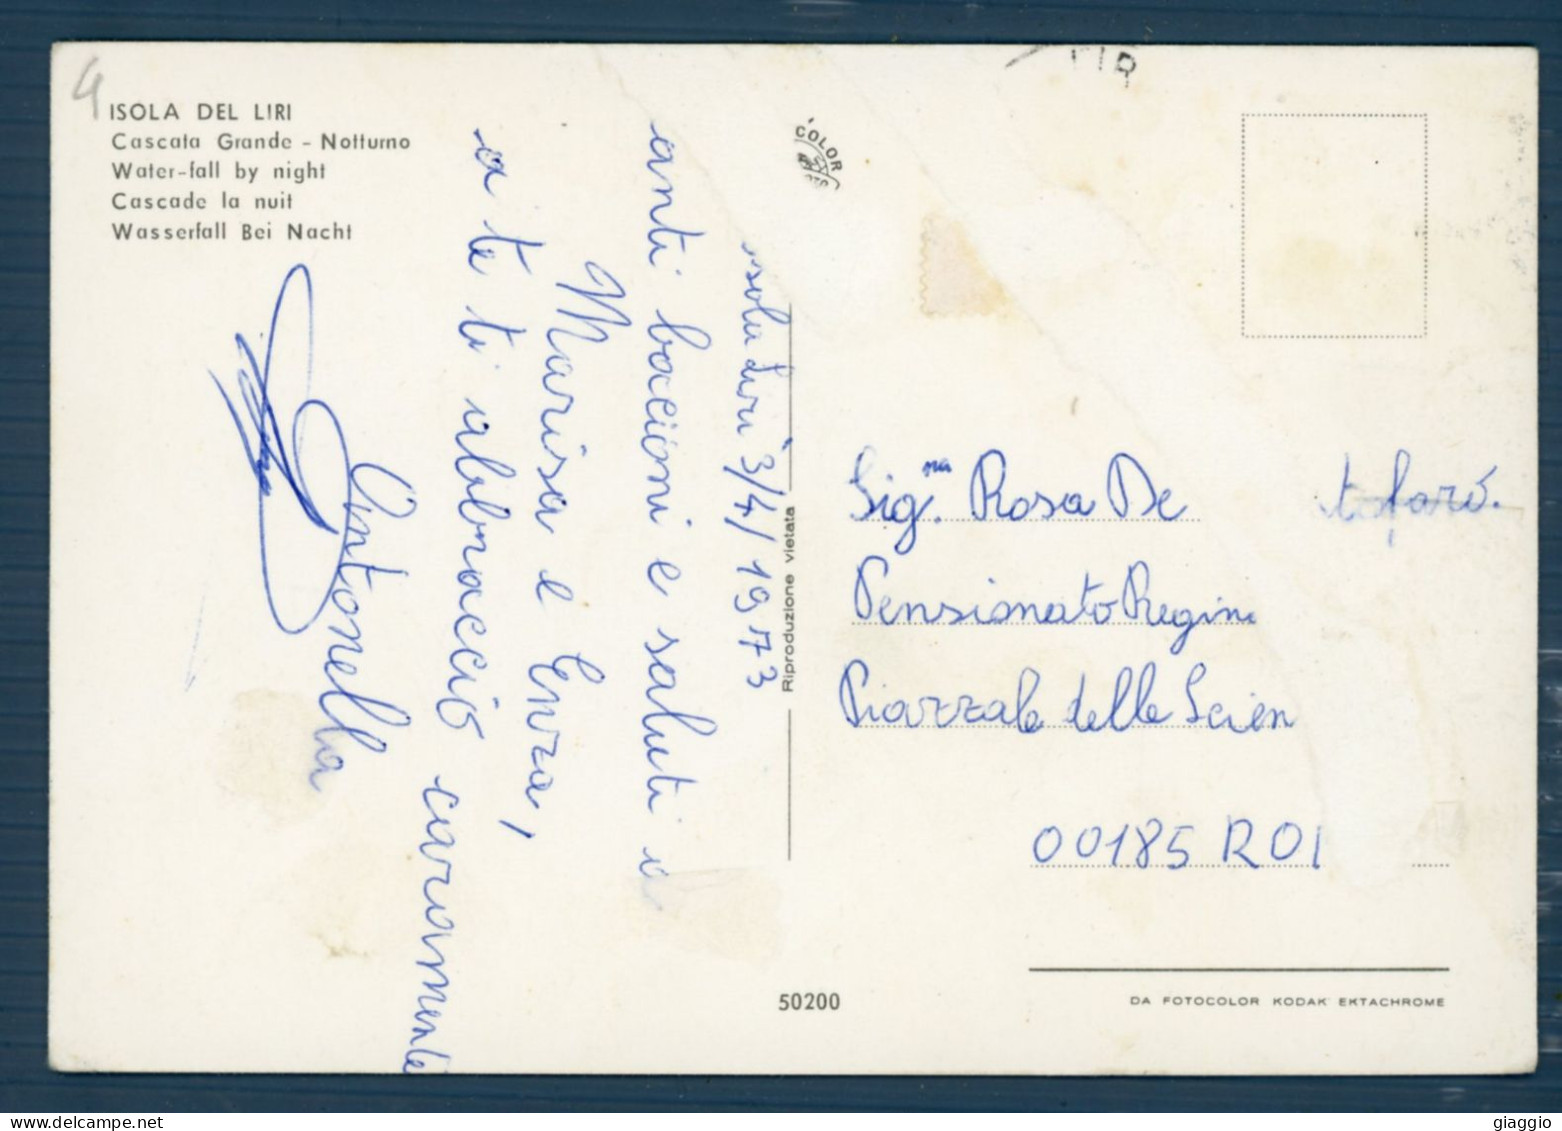 4
ISOLA DEL LIRI
Cascata Grande - Notturno
Water-fall by night
Cascade la nuit
Wasserfall Bei Nacht
COLOR
sola Liri 3/4/1973
anti bacioni e saluti a
Marisa e Enza,
a te ti abbraccio caramente
Antonella
Riproduzione vietata
Sig.na Rosa De
Pensionato Regin
Piazzale delle Scien
00185 RO
50200
DA FOTOCOLOR KODAK EKTACHROME
giaggio